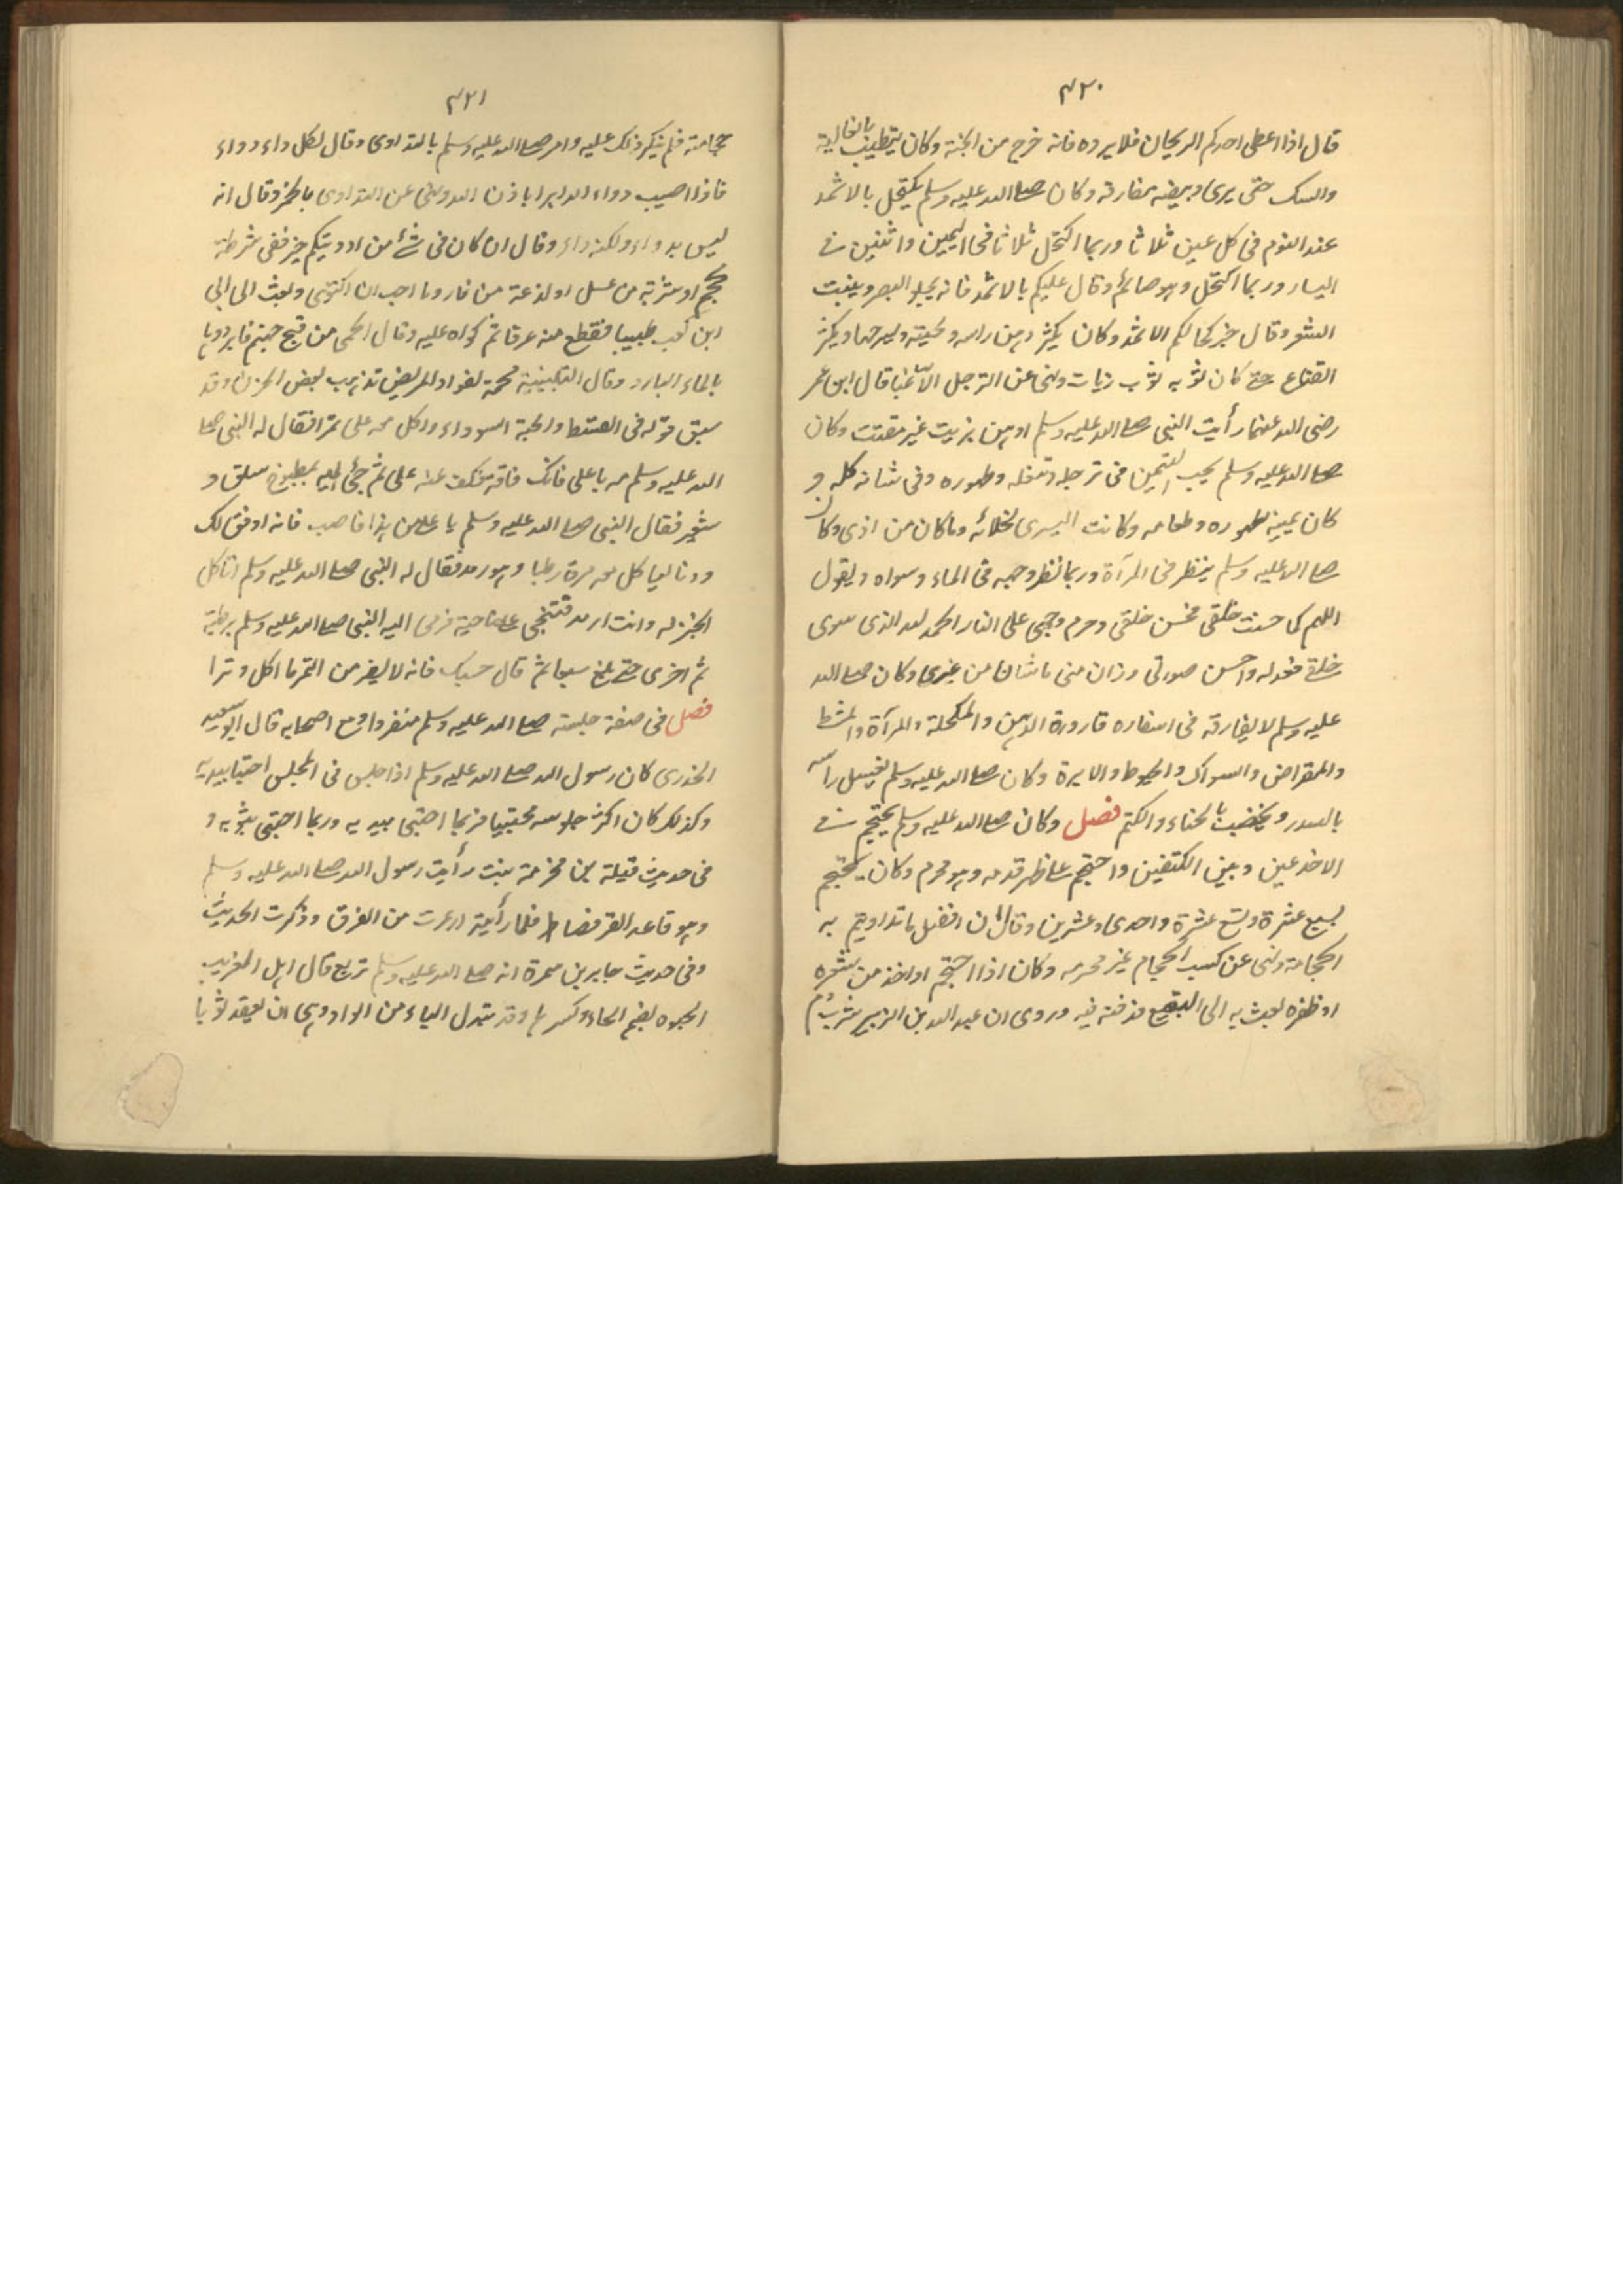 ٤٢٠
قال اذا اعطى احدكم الريحان فلا يرده فانه خرج من الجنة وكان يتطيب بالغالية
والمسك حتى يرى وبيضه بمفارقه وكان صلى الله عليه وسلم يكتحل بالاثمد
عند النوم فى كل عين ثلاثا وربما اكتحل ثلاثا فى اليمين واثنين فى
اليسار وربما اكتحل وهو صائم وقال عليكم بالاثمد فانه يجلو البصر وينبت
الشعر وقال خير كحالكم الاثمد وكان يكثر دهن راسه ولحيته وليسرحها ويكثر
القناع حتى كان ثوبه ثوب زيات ونهى عن الترجل الا غبا قال ابن عمر
رضى الله عنهما رأيت النبى صلى الله عليه وسلم ادهن بزيت غير مقتت وكان
صلى الله عليه وسلم يحب التيمن فى ترجله وتنعله وطهوره وفى شانه كله و
كان يمينه لطهوره وطعامه وكانت اليسرى لخلائه وما كان من اذى وكان
صلى الله عليه وسلم ينظر فى المرآة وربما نظر وجهه فى الماء وسواه ويقول
اللهم كما حسنت خلقى فحسن خلقى وحرم وجهى على النار الحمد لله الذى سوى
خلقى فعدله واحسن صورتى وزان منى ما شان من غيرى وكان صلى الله
عليه وسلم لا يفارقه فى اسفاره قارورة الدهن والمكحلة والمرآة والمشط
والمقراض والسواك والخيوط والابرة وكان صلى الله عليه وسلم يغسل راسه
بالسدر ويخضب بالحناء والكتم فصل وكان صلى الله عليه وسلم يحتجم فى
الاخدعين وبين الكتفين واحتجم على ظهر قدمه وهو محرم وكان يحتجم
لسبع عشرة وتسع عشرة واحدى وعشرين وقال ان افضل ما تداويتم به
الحجامة ونهى عن كسب الحجام غير محرمه وكان اذا احتجم او اخذ من شعره
او ظفره بعث به الى البقيع فدفنه فيه وروى ان عبد الله بن الزبير شرب دم
٤٢١
حجامته فلم ينكر ذلك عليه وامر صلى الله عليه وسلم بالتداوى وقال لكل داء دواء
فاذا اصيب دواء الداء برا باذن الله ونهى عن التداوى بالخمر وقال انه
ليس بدواء ولكنه داء وقال ان كان فى شئ من ادويتكم خير ففى شرطة
محجم او شربة من عسل او لذعة من نار وما احب ان اكتوى وبعث الى ابى
ابن كعب طبيبا فقطع منه عرقا ثم كواه عليه وقال الحمى من فيح جهنم فابردوها
بالماء البارد وقال التلبينة مجمة لفواد المريض تذهب ببعض الحزن وقد
سبق قوله فى القسط والحبة السوداء واكل معه على تمرا فقال له النبى صلى
الله عليه وسلم مه يا على فانك ناقه فكف عنه على ثم جئ اليه بمطبوخ سلق و
شعير فقال النبى صلى الله عليه وسلم يا على من هذا فاصب فانه اوفق لك
ودنا لياكل معه مرة رطبا وهو رمد فقال له النبى صلى الله عليه وسلم اتاكل
وانت ارمد فتنحى على ناحية فرمى اليه النبى صلى الله عليه وسلم برطبة
ثم اخرى حتى بلغ سبعا ثم قال حسبك فانه لا يضر من التمر ما اكل وترا
فصل فى صفة جلسته صلى الله عليه وسلم منفردا ومع اصحابه قال ابو سعيد
الخدرى كان رسول الله صلى الله عليه وسلم اذا جلس فى المجلس احتبا بيديه
وكذلك كان اكثر جلوسه محتبيا فربما احتبى بيديه وربما احتبى بثوبه و
فى حديث قيلة بن مخرمة بنت رأيت رسول الله صلى الله عليه وسلم
وهو قاعد القرفصاء فلما رأيته ارعدت من الفرق وذكرت الحديث
وفى حديث جابر بن سمرة انه صلى الله عليه وسلم تربع قال اهل الغريب
الحبوه بضم الحاء وكسرها وقد تبدل الياء من الواو وهى ان يعقد ثوبا